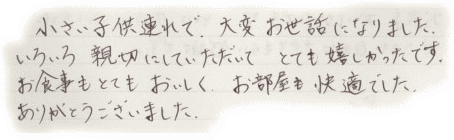 小さい子供連れで、大変お世話になりました。
いろいろ親切にしていただいて とても嬉しかったです。
お食事もとてもおいしく、お部屋も快適でした。
ありがとうございました。